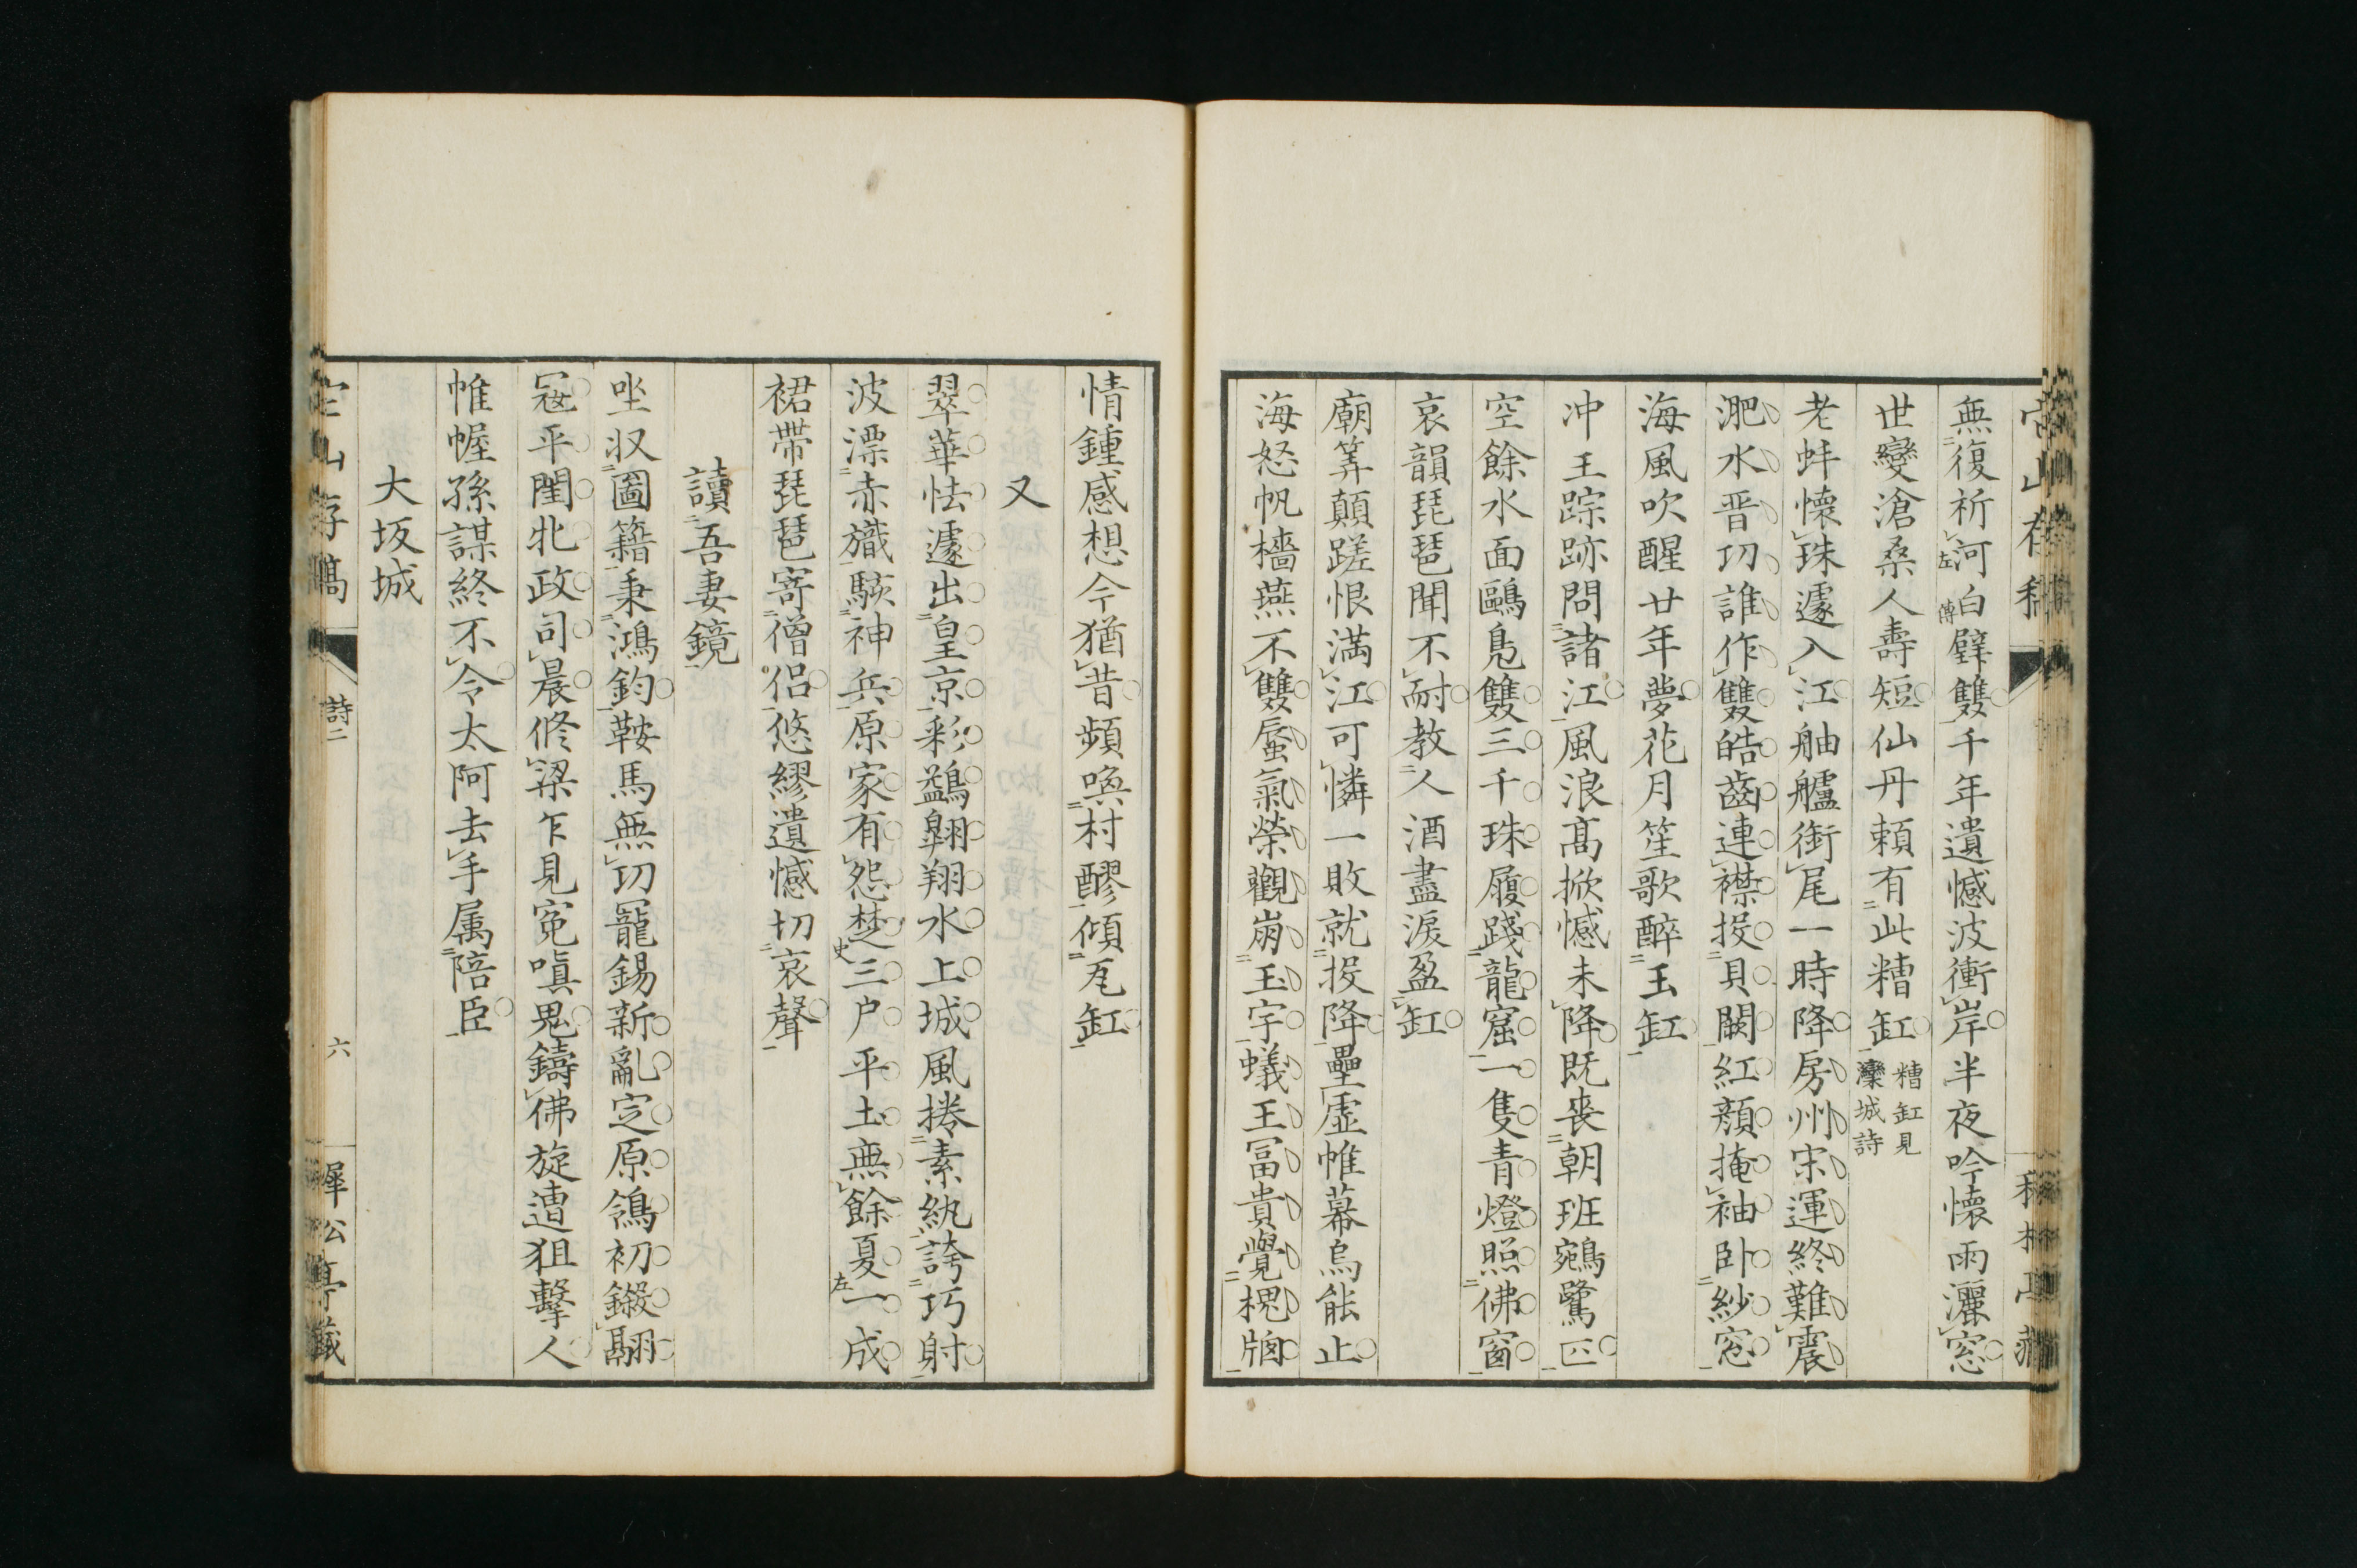 無復祈河左傳白璧雙千年遺憾波衝岸半夜吟懷雨灑窓
世變滄桑人壽短仙丹頼有此糟缸糟缸見灤城詩
老蚌懐珠遽入江舳艫銜尾一時降房州宋運終難震
淝水晋功誰作雙皓齒連襟投貝闕紅顏掩袖臥紗窓
海風吹醒廿年夢花月笙歌醉玉缸
冲王踪跡問諸江風浪髙掀憾未降既喪朝班鵷鷺
空餘水面鷗鳬雙三千珠履踐龍窟一隻青燈照佛窗
哀韻琵琶聞不耐教人酒盡淚盈缸
廟筭顛蹉恨滿江可憐一敗就投降壘虚帷幕烏能止
海怒帆檣燕不雙蜃氣榮觀崩玉宇蟻王冨貴覺槐牕
情鍾感想今猶昔頻喚村醪傾瓦缸
又
翠華怯遽出皇京彩鷁翺翔水上城風捲素紈誇巧射
波漂赤熾駭神兵原家有怨楚史三户平土無餘夏左一成
裙帯琵琶寄僧侶悠繆遺憾切哀聲
讀吾妻鏡
坐収圖籍秉鴻鈞鞍馬無功寵錫新亂定原鴒初鎩翮
冦平閨北政司晨脩梁乍見寃嗔鬼鑄佛旋遭狙擊人
帷幄孫謀終不令太阿去手属陪臣
大坂城
詩二
六